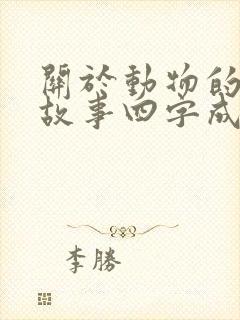 關於動物的
故事四字成
李勝